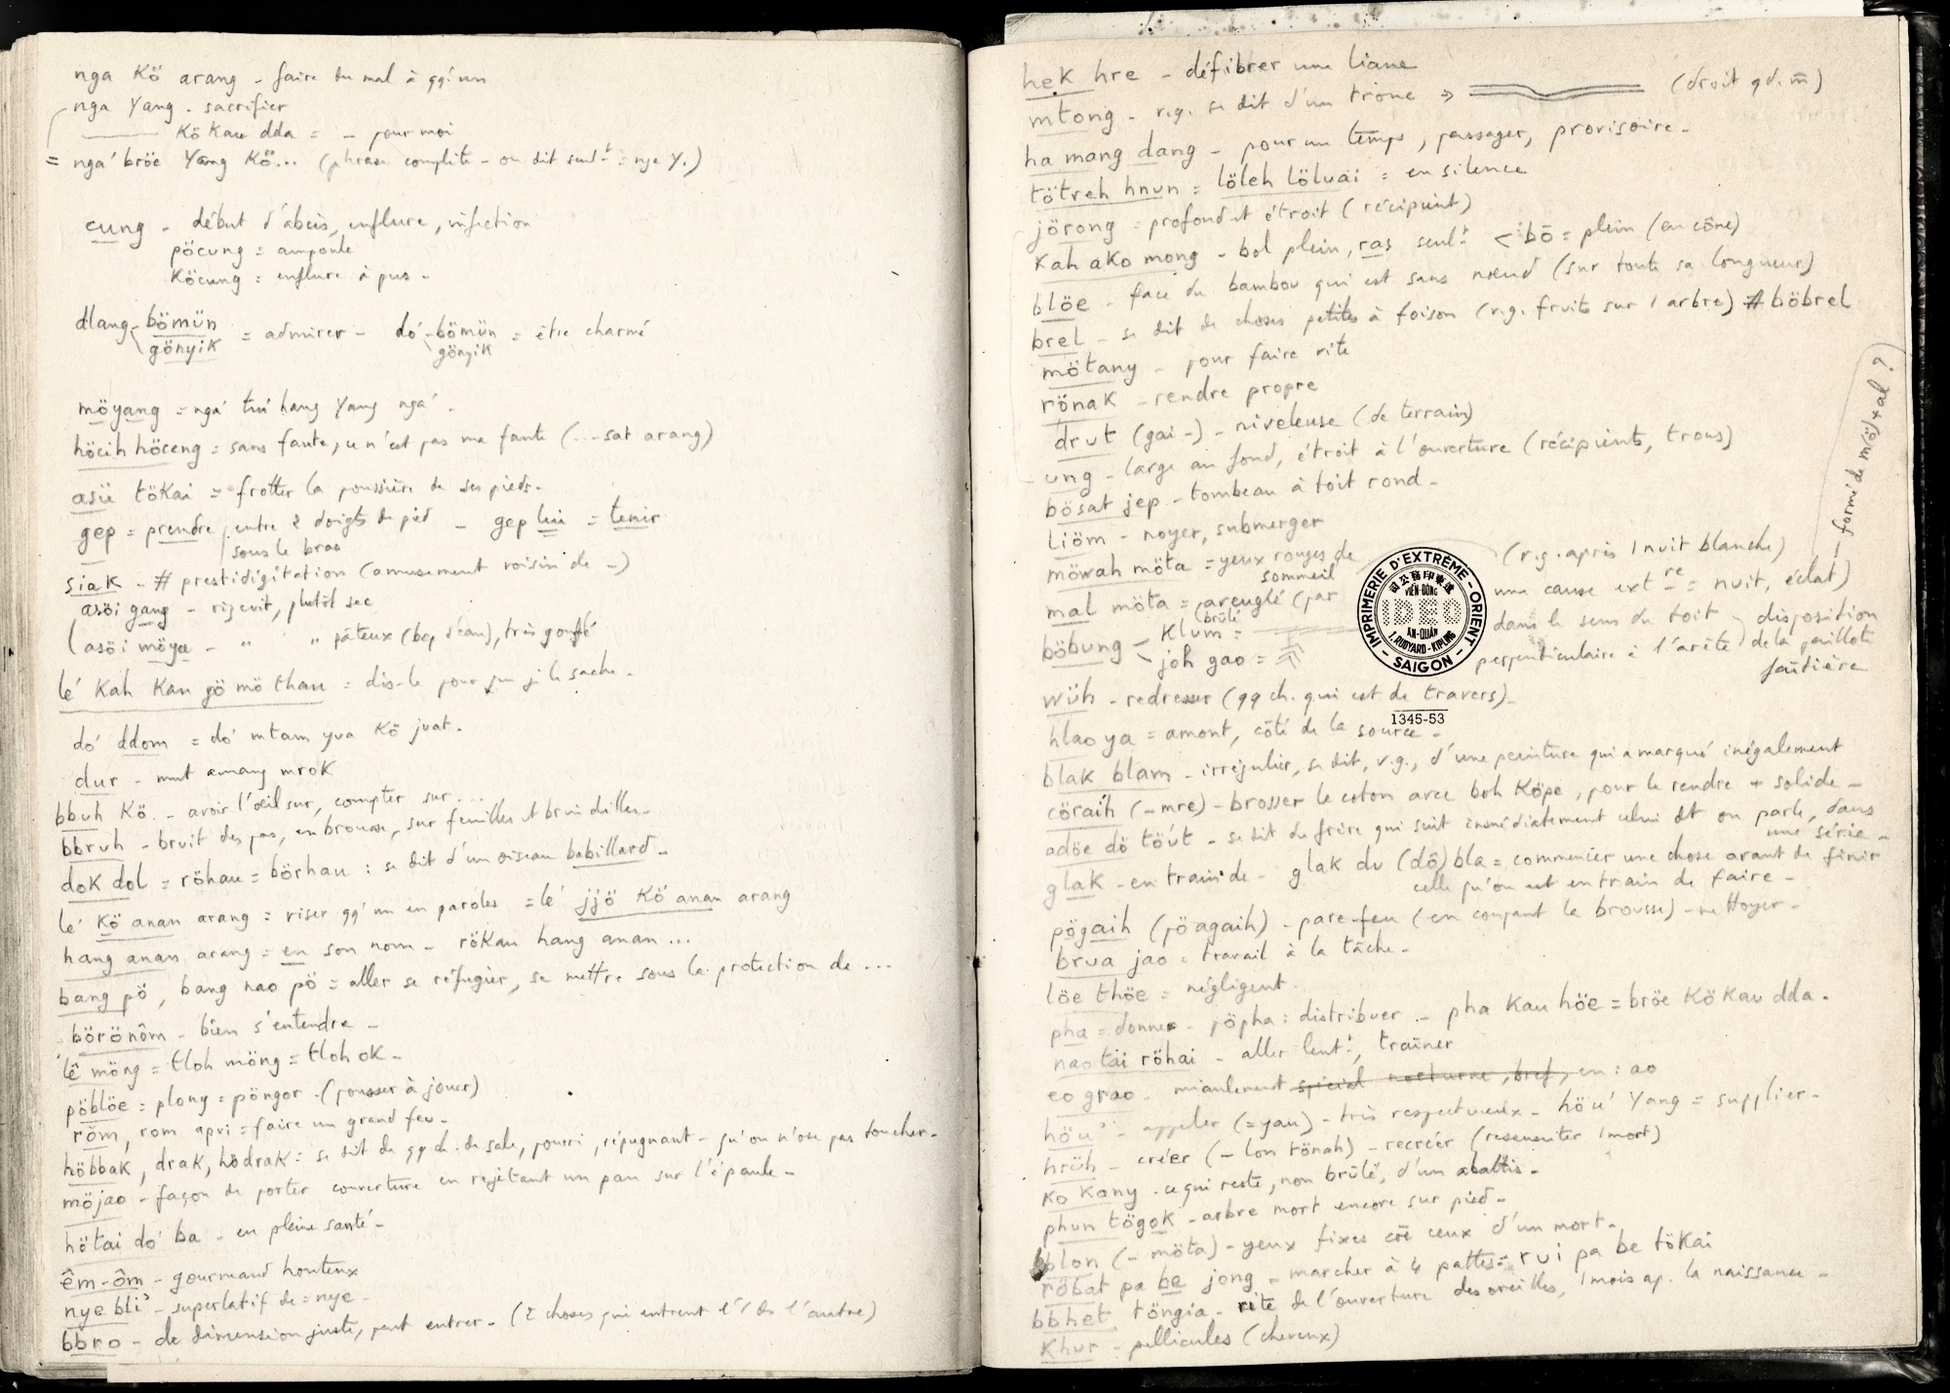 nga Kö arang - faire du mal à qq'un
nga Yang - sacrifier
Kö Kau dda = - pour moi
= nga' bröe Yang Kö... (phrase complète - on dit seulᵗ = nye Y.)
cung - début d'abcès, enflure, infection
pöcung = ampoule
Köcung = enflure à pus -
dlang bömün = admirer - dó bömün = être charmé
gönyik gönyik
möyang = nga' hang Yang nga' -
höcih höceng = sans faute, ce n'est pas ma faute (...sat arang)
asië tökai = frotter la poussière de ses pieds -
gep = prendre entre 2 doigts de pied - gep = tenir
sous le bras
siak - # prestidigitation (amusement voisin de -)
asöi gang - riz cuit, plutôt sec
asöi möya - " " " pâteux (bcp d'eau), très gonflé
lé' Kah Kau pö mö thau = dis-le pour que je le sache -
dó' ddom = dó' mtam yua Kö juat -
dur - mut amang mrok
bbuh Kö - avoir l'oeil sur, compter sur ...
bbruh - bruit des pas, en brousse, sur feuilles et brindilles -
dok dol = röhau = börhau : se dit d'un oiseau babillard -
lé' Kö anan arang = viser qq'un en paroles = lé' jjö Kö anan arang
hang anan arang = en son nom - rökau hang anan ...
bang pö, bang nao pö = aller se réfugier, se mettre sous la protection de ...
börönôm - bien s'entendre -
lê möng = tloh möng = tloh ok -
pöblöe = plong = pöngor - (pousser à jouer)
röm, rom apui = faire un grand feu -
höbbak, drak, hödrak = se dit de qq ch. de sale, pourri, répugnant - qu'on n'ose pas toucher -
möjao - façon de porter couverture en rejetant un pan sur l'épaule -
hötai dó' ba - en pleine santé -
êm-ôm - gourmand honteux
nye bli' - superlatif de = nye -
bbro - de dimension juste, peut entrer - (2 choses qui entrent l'1 ds l'autre)
hek hre - défibrer une liane
mtong - v.g. se dit d'un tronc → (droit qd. m̄)
ha mang dang - pour un temps, passager, provisoire -
tötreh hnun = löleh löluai = en silence
jörong = profond et étroit (récipient)
Kah ako mong - bol plein, ras seulᵗ < bō = plein (en cône)
blöe - face du bambou qui est sans nœud (sur toute sa longueur)
brel - se dit de choses petites à foison (v.g. fruits sur 1 arbre) # böbrel
mötany - pour faire vite
rönak - rendre propre
drut (gai -) - niveleuse (de terrain)
ung - large au fond, étroit à l'ouverture (récipients, trous)
bösat jep - tombeau à toit rond -
liöm - noyer, submerger
möwah möta = yeux rouges de sommeil (v.g. après 1 nuit blanche)
mal möta = aveuglé (par une cause extʳᵉ = nuit, éclat) - formé de m(ö)+al ?
brûlé
böbung Klum = dans le sens du toit disposition
joh gao = perpendiculaire à l'arête de la paillote
faîtière
IMPRIMERIE D'EXTRÊME-ORIENT - SAIGON -
司公務印東遠
VIỄN-ĐÔNG
IDEO
ẤN-QUÁN
1, RUDYARD-KIPLING
wüh - redresser (qq ch. qui est de travers) -
1345-53
hlao ya = amont, côté de la source -
blak blam - irrégulier, se dit, v.g., d'une peinture qui a marqué inégalement
cöraih (-mre) - brosser le coton avec boh Köpe, pour le rendre + solide -
adöe dö töút - se dit du frère qui suit immédiatement celui dt on parle, dans
une série -
glak - en train de - glak du (dô) bla = commencer une chose avant de finir
celle qu'on est en train de faire -
pögaih (pö agaih) - pare-feu (en coupant la brousse) - nettoyer -
brua jao = travail à la tâche -
löe thöe = négligent -
pha = donner - pöpha : distribuer - pha Kau höe = bröe Kö Kau dda -
nao tai röhai - aller lentᵗ, traîner
eo grao - miaulement spécial nocturne, bref, en : ao
höu' - appeler (= yau) - très respectueux - höu' Yang = supplier -
hrüh - créer (- lon tönah) - recréer (ressusciter 1 mort)
Kö Kany - ce qui reste, non brûlé, d'un abattis -
phun tögok - arbre mort encore sur pied -
bblon (- möta) - yeux fixes cō ceux d'un mort -
röbat pa be jong = marcher à 4 pattes = rui pa be tökai
bbhet töngia - rite de l'ouverture des oreilles, 1 mois ap. la naissance -
Khur - pellicules (cheveux)